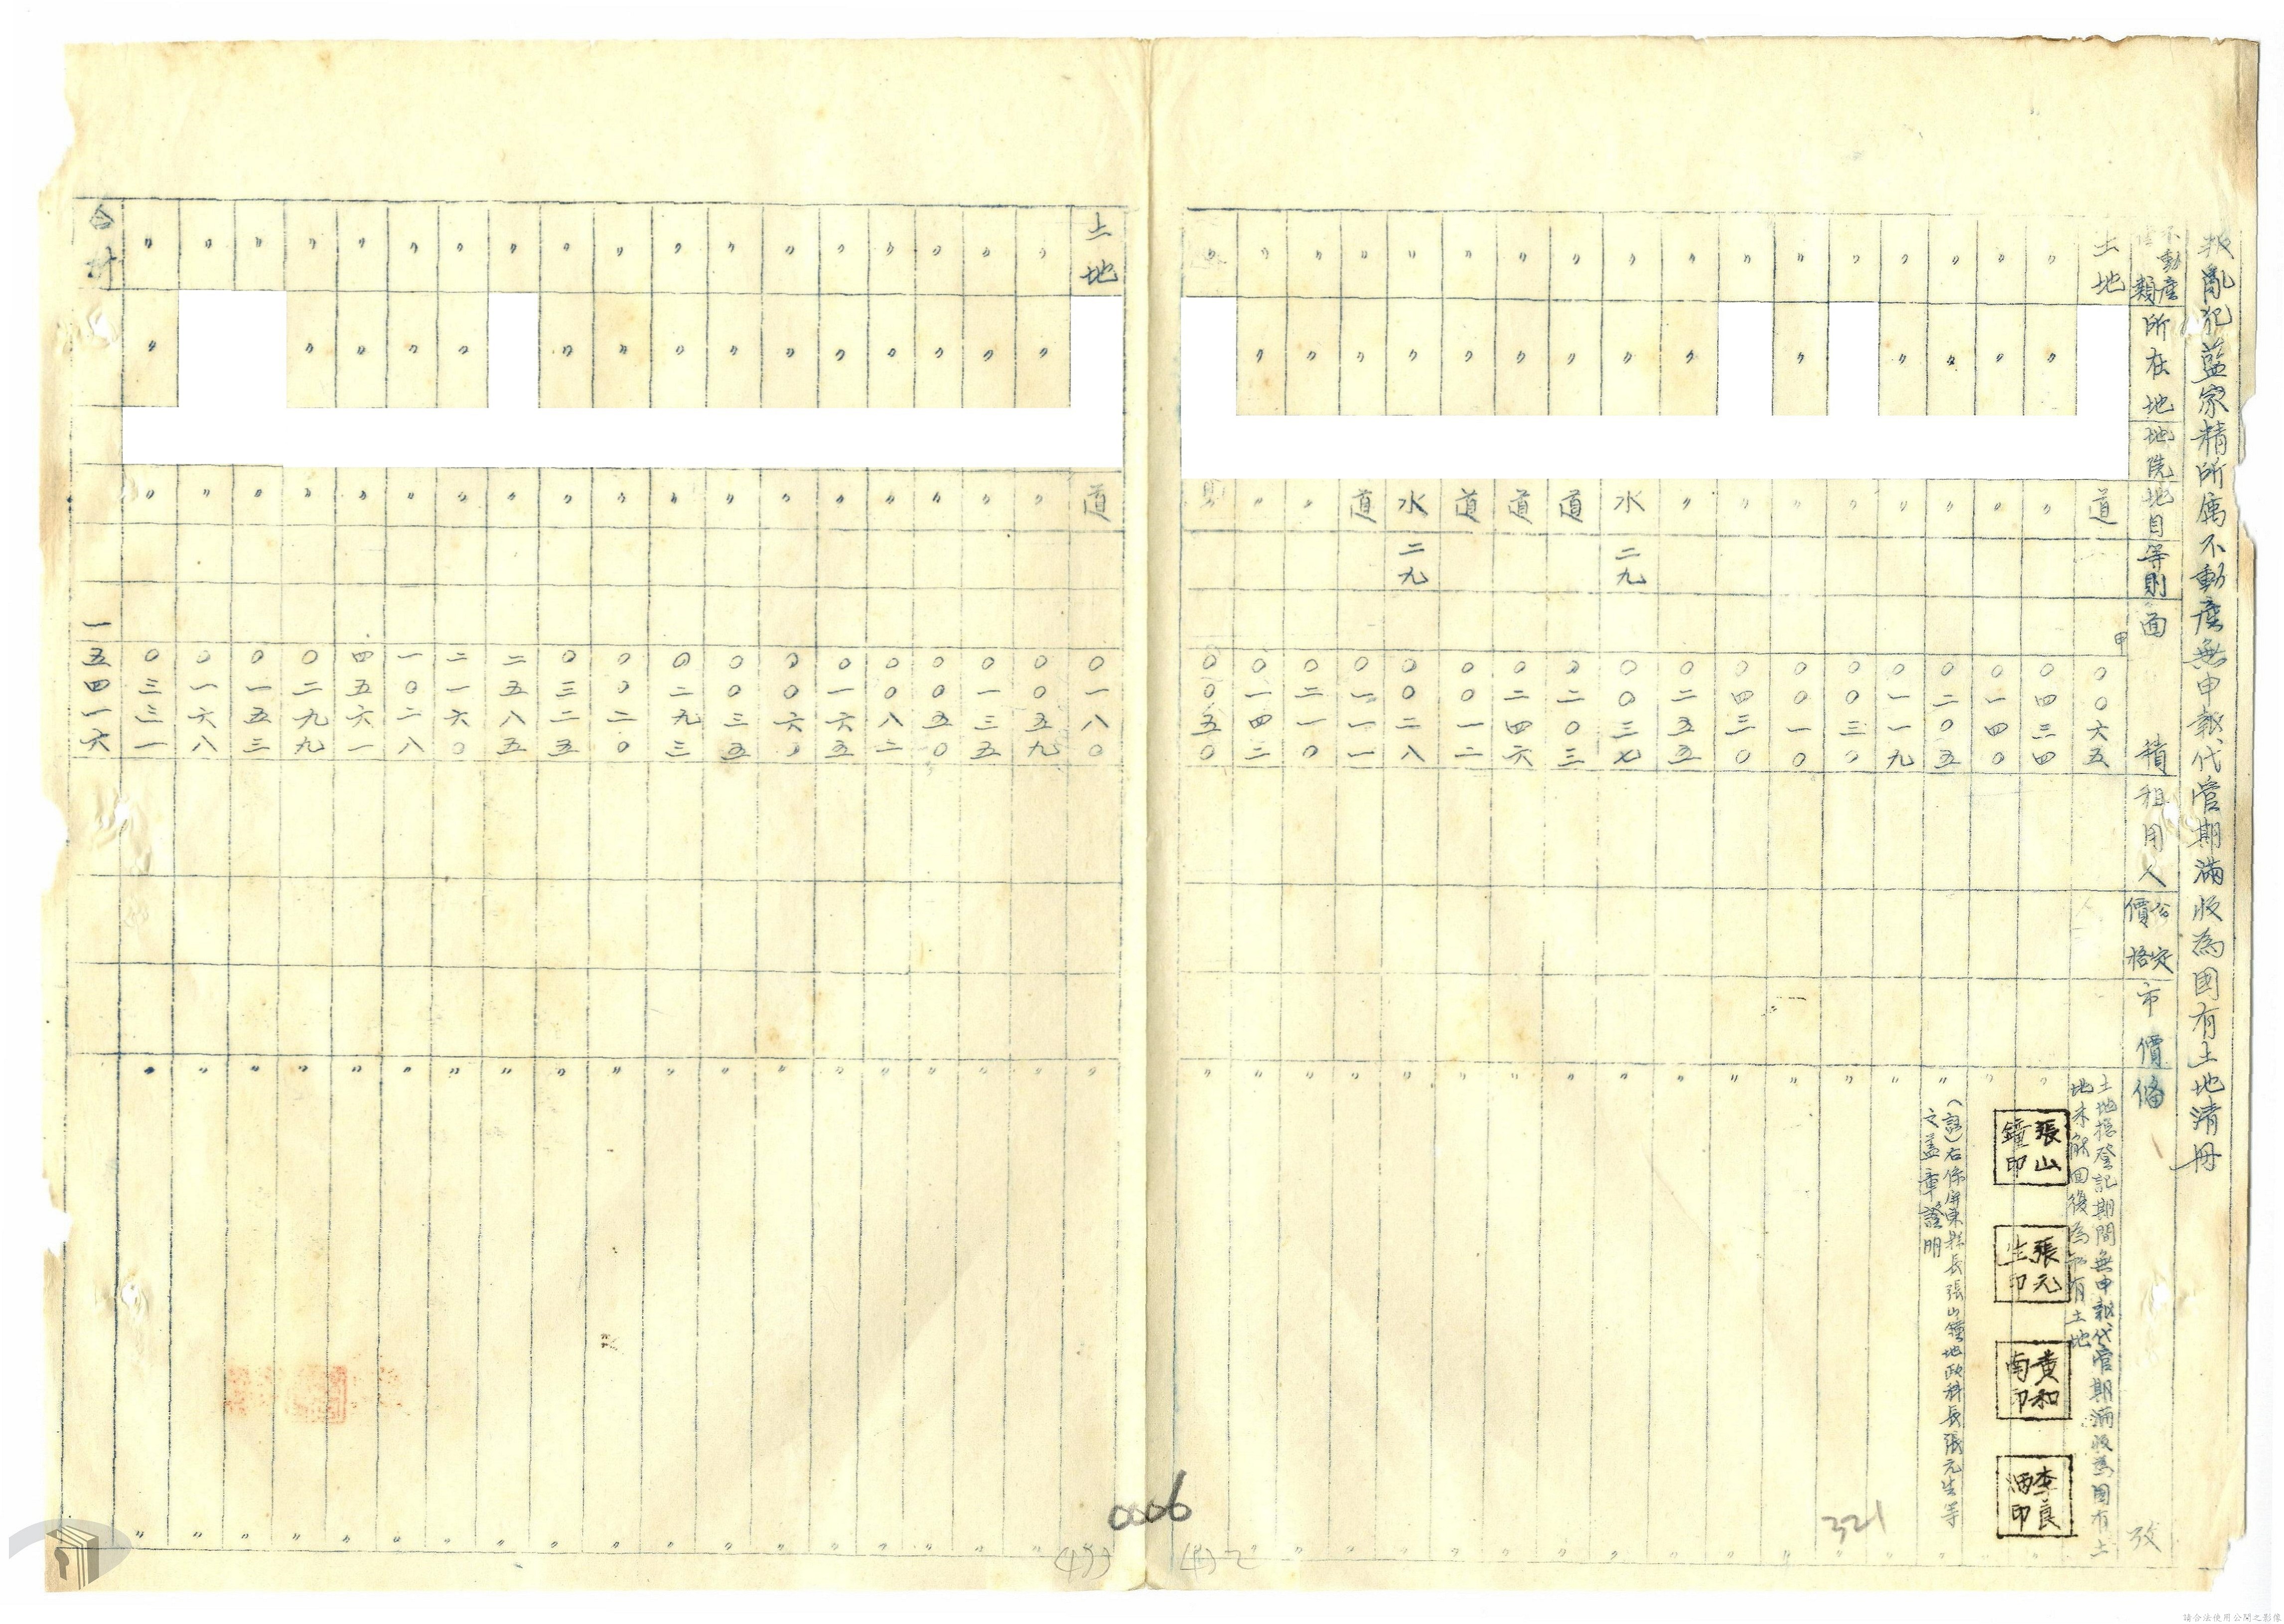 叛亂犯藍家精所屬不動產無申報代管期滿收為國有土地清冊
不動產種類
所在地
地號
地目
等則
面積
租用人
公定價格
市價
備攷
土地 道 甲 〇〇六五 土地總登記期間無申報代管期滿收為國有土地未解囬後為私有土地
〃 〃 〃 〇四三四 〃 〃
〃 〃 〃 〇一四〇 〃 〃
〃 〃 〃 〇二〇五 〃 〃
〃 〃 〃 〇一一九 〃 〃
〃 〃 〇〇三〇 〃 〃
〃 〃 〃 〇〇一〇 〃 〃
〃 〃 〇四三〇 〃 〃
〃 〃 〃 〇二五五 〃 〃
〃 〃 水 二九 〇〇三七 〃 〃
〃 〃 道 〇二〇三 〃 〃
〃 〃 道 〇二四六 〃 〃
〃 〃 道 〇〇一二 〃 〃
〃 〃 水 二九 〇〇二八 〃 〃
〃 〃 道 〇一一一 〃 〃
〃 〃 〃 〇二一〇 〃 〃
〃 〃 〃 〇一四三 〃 〃
〃 〇〇五〇 〃 〃
張山鐘印
張元生印
黃和南印
李良洒印
(註)右係屏東縣長張山鐘地政科長張元生等之蓋章證明
321
(4)2
土地 道 〇一八〇 〃
〃 〃 〃 〇〇五九 〃 〃
〃 〃 〃 〇一三五 〃 〃
〃 〃 〃 〇〇五〇 〃 〃
〃 〃 〃 〇〇八二 〃 〃
〃 〃 〃 〇一六五 〃 〃
〃 〃 〃 〇〇六〇 〃 〃
〃 〃 〃 〇〇三五 〃 〃
〃 〃 〃 〇二九三 〃 〃
〃 〃 〃 〇〇二〇 〃 〃
〃 〃 〃 〇三二五 〃 〃
〃 〃 二五八五 〃 〃
〃 〃 〃 二一六〇 〃 〃
〃 〃 〃 一〇二八 〃 〃
〃 〃 〃 四五六一 〃 〃
〃 〃 〃 〇二九九 〃 〃
〃 〃 〇一五三 〃 〃
〃 〃 〇一六八 〃 〃
〃 〃 〃 〇三三一 〃 〃
合計 一五四一六
0006
請合法使用公開之影像